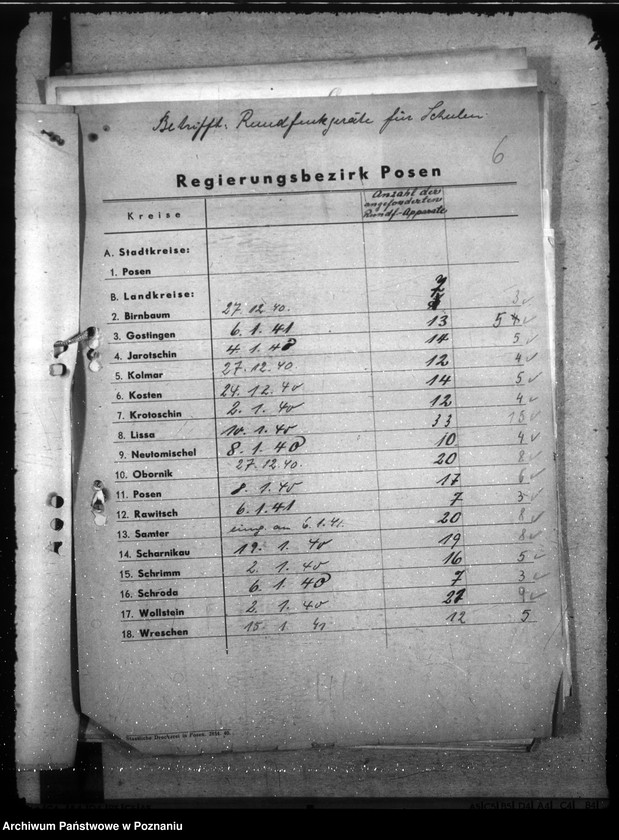 Betrifft: Rundfunkgeräte für Schulen
6
Regierungsbezirk Posen
Kreise
Anzahl der angeforderten Rundf-Apparate
A. Stadtkreise:
1. Posen
B. Landkreise:
2. Birnbaum 27.12.40. 7 3
3. Gostingen 6.1.41 13 5
4. Jarotschin 4.1.40 14 5
5. Kolmar 27.12.40. 12 4
6. Kosten 24.12.40 14 5
7. Krotoschin 2.1.40 12 4
8. Lissa 10.1.40 33 15
9. Neutomischel 8.1.40 10 4
10. Obornik 27.12.40. 20 8
11. Posen 8.1.40 17 6
12. Rawitsch 6.1.41 7 3
13. Samter eing. am 6.1.41. 20 8
14. Scharnikau 19.1.40 19 8
15. Schrimm 2.1.40 16 5
16. Schroda 6.1.40 7 3
17. Wollstein 2.1.40 27 9
18. Wreschen 15.1.41 12 5
Archiwum Państwowe w Poznaniu